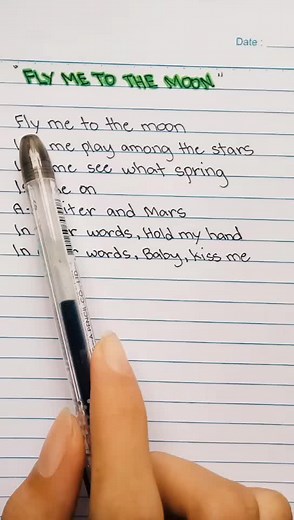 Date:
"FLY ME TO THE MOON"
Fly me to the moon
me play among the stars
me see what spring
on
and Mars
In words, Hold my hand
In words, Baby, kiss me